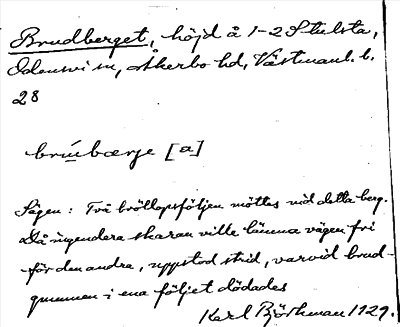 Brudberget, höjd å 1-2 Stulsta,
Odensvi sn, Åkerbo hd, Västmanl. l.
28
brúmbærje [a]
Sägen: Två bröllopsföljen möttes vid detta berg.
Då ingendera skaran ville lämna vägen fri
för den andra, uppstod strid, varvid brud-
gummen i ena följet dödades
Karl Björkman 1929.